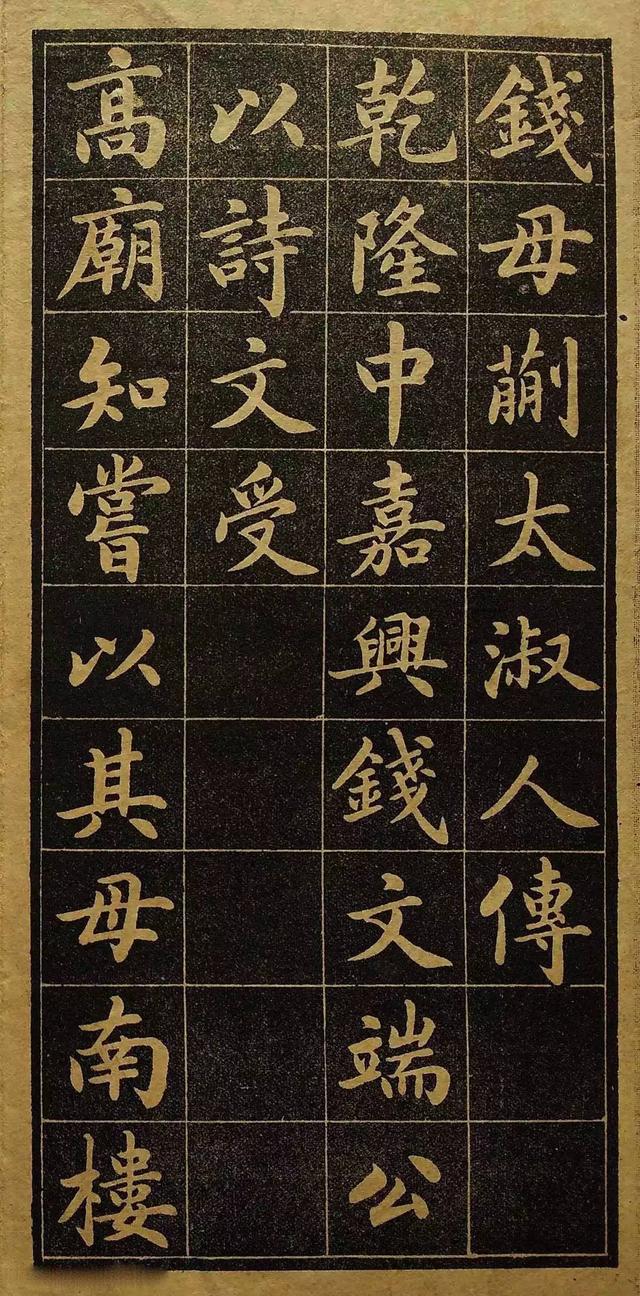 錢母蒯太淑人傳
乾隆中嘉興錢文端公
以詩文受
高廟知嘗以其母南樓